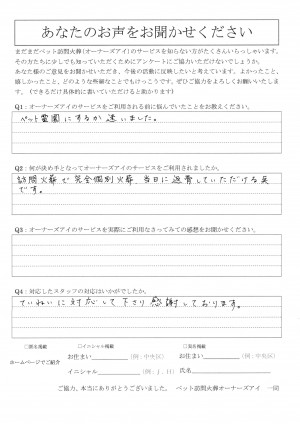 あなたのお声をお聞かせください
まだまだペット訪問火葬(オーナーズアイ)のサービスを知らない方がたくさんいらっしゃいます。
その方たちに少しでも知っていただくためにアンケートにご協力いただけないでしょうか。
あなた様のご意見をお聞かせいただき、今後の活動に反映したいと考えています。よかったこと、
嬉しかったこと、どのような些細なことでもけっこうです。ぜひご協力をよろしくお願いいたします。
(できるだけ具体的に書いていただけると助かります)
Q1：オーナーズアイのサービスをご利用される前に悩んでいたことをお教えください。
ペット霊園にするか迷いました。
Q2：何が決め手となってオーナーズアイのサービスをご利用されましたか。
訪問火葬で完全個別火葬、当日に返骨していただける点
です。
Q3：オーナーズアイのサービスを実際にご利用なさってみての感想をお聞かせください。
Q4：対応したスタッフの対応はいかがでしたか。
ていねいに対応して下さり感謝しております。
□匿名掲載 □イニシャル掲載 □実名掲載
ホームページでご紹介
お住まい (例：中央区) お住まい (例：中央区)
イニシャル (例：J．H) 氏名
ご協力、本当にありがとうございました。 ペット訪問火葬オーナーズアイ 一同